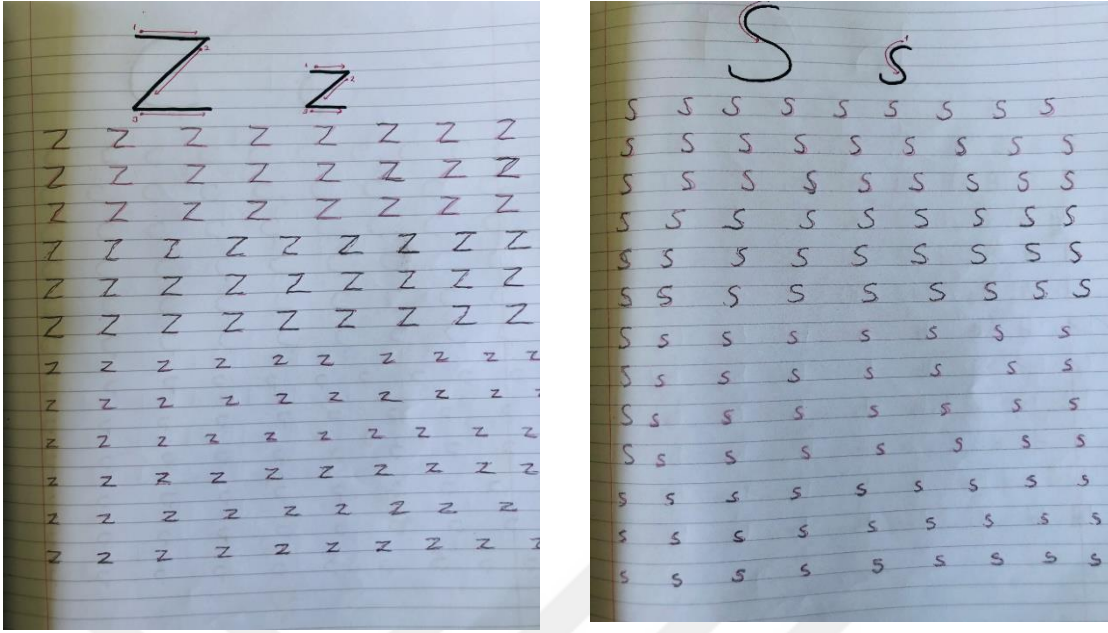 Z z
Z Z Z Z Z Z Z Z
Z Z Z Z Z Z Z Z
Z Z Z Z Z Z Z Z
Z Z Z Z Z Z Z Z Z
Z Z Z Z Z Z Z Z Z
Z Z Z Z Z Z Z Z Z
z z z z z z z z z z
z z z z z z z z z
z z z z z z z z z z
z z z z z z z z z z
z z z z z z z z z
z z z z z z z z z z
S s
S S S S S S S S S
S S S S S S S S S
S S S S S S S S S
S S S S S S S S S
S S S S S S S S S
S S S S S S S S S
S s s s s s s s
S s s s s s s s
S s s s s s s s
S s s s s s s s
s s s s s s s s s
s s s s s s s s s
s s s s s s s s s